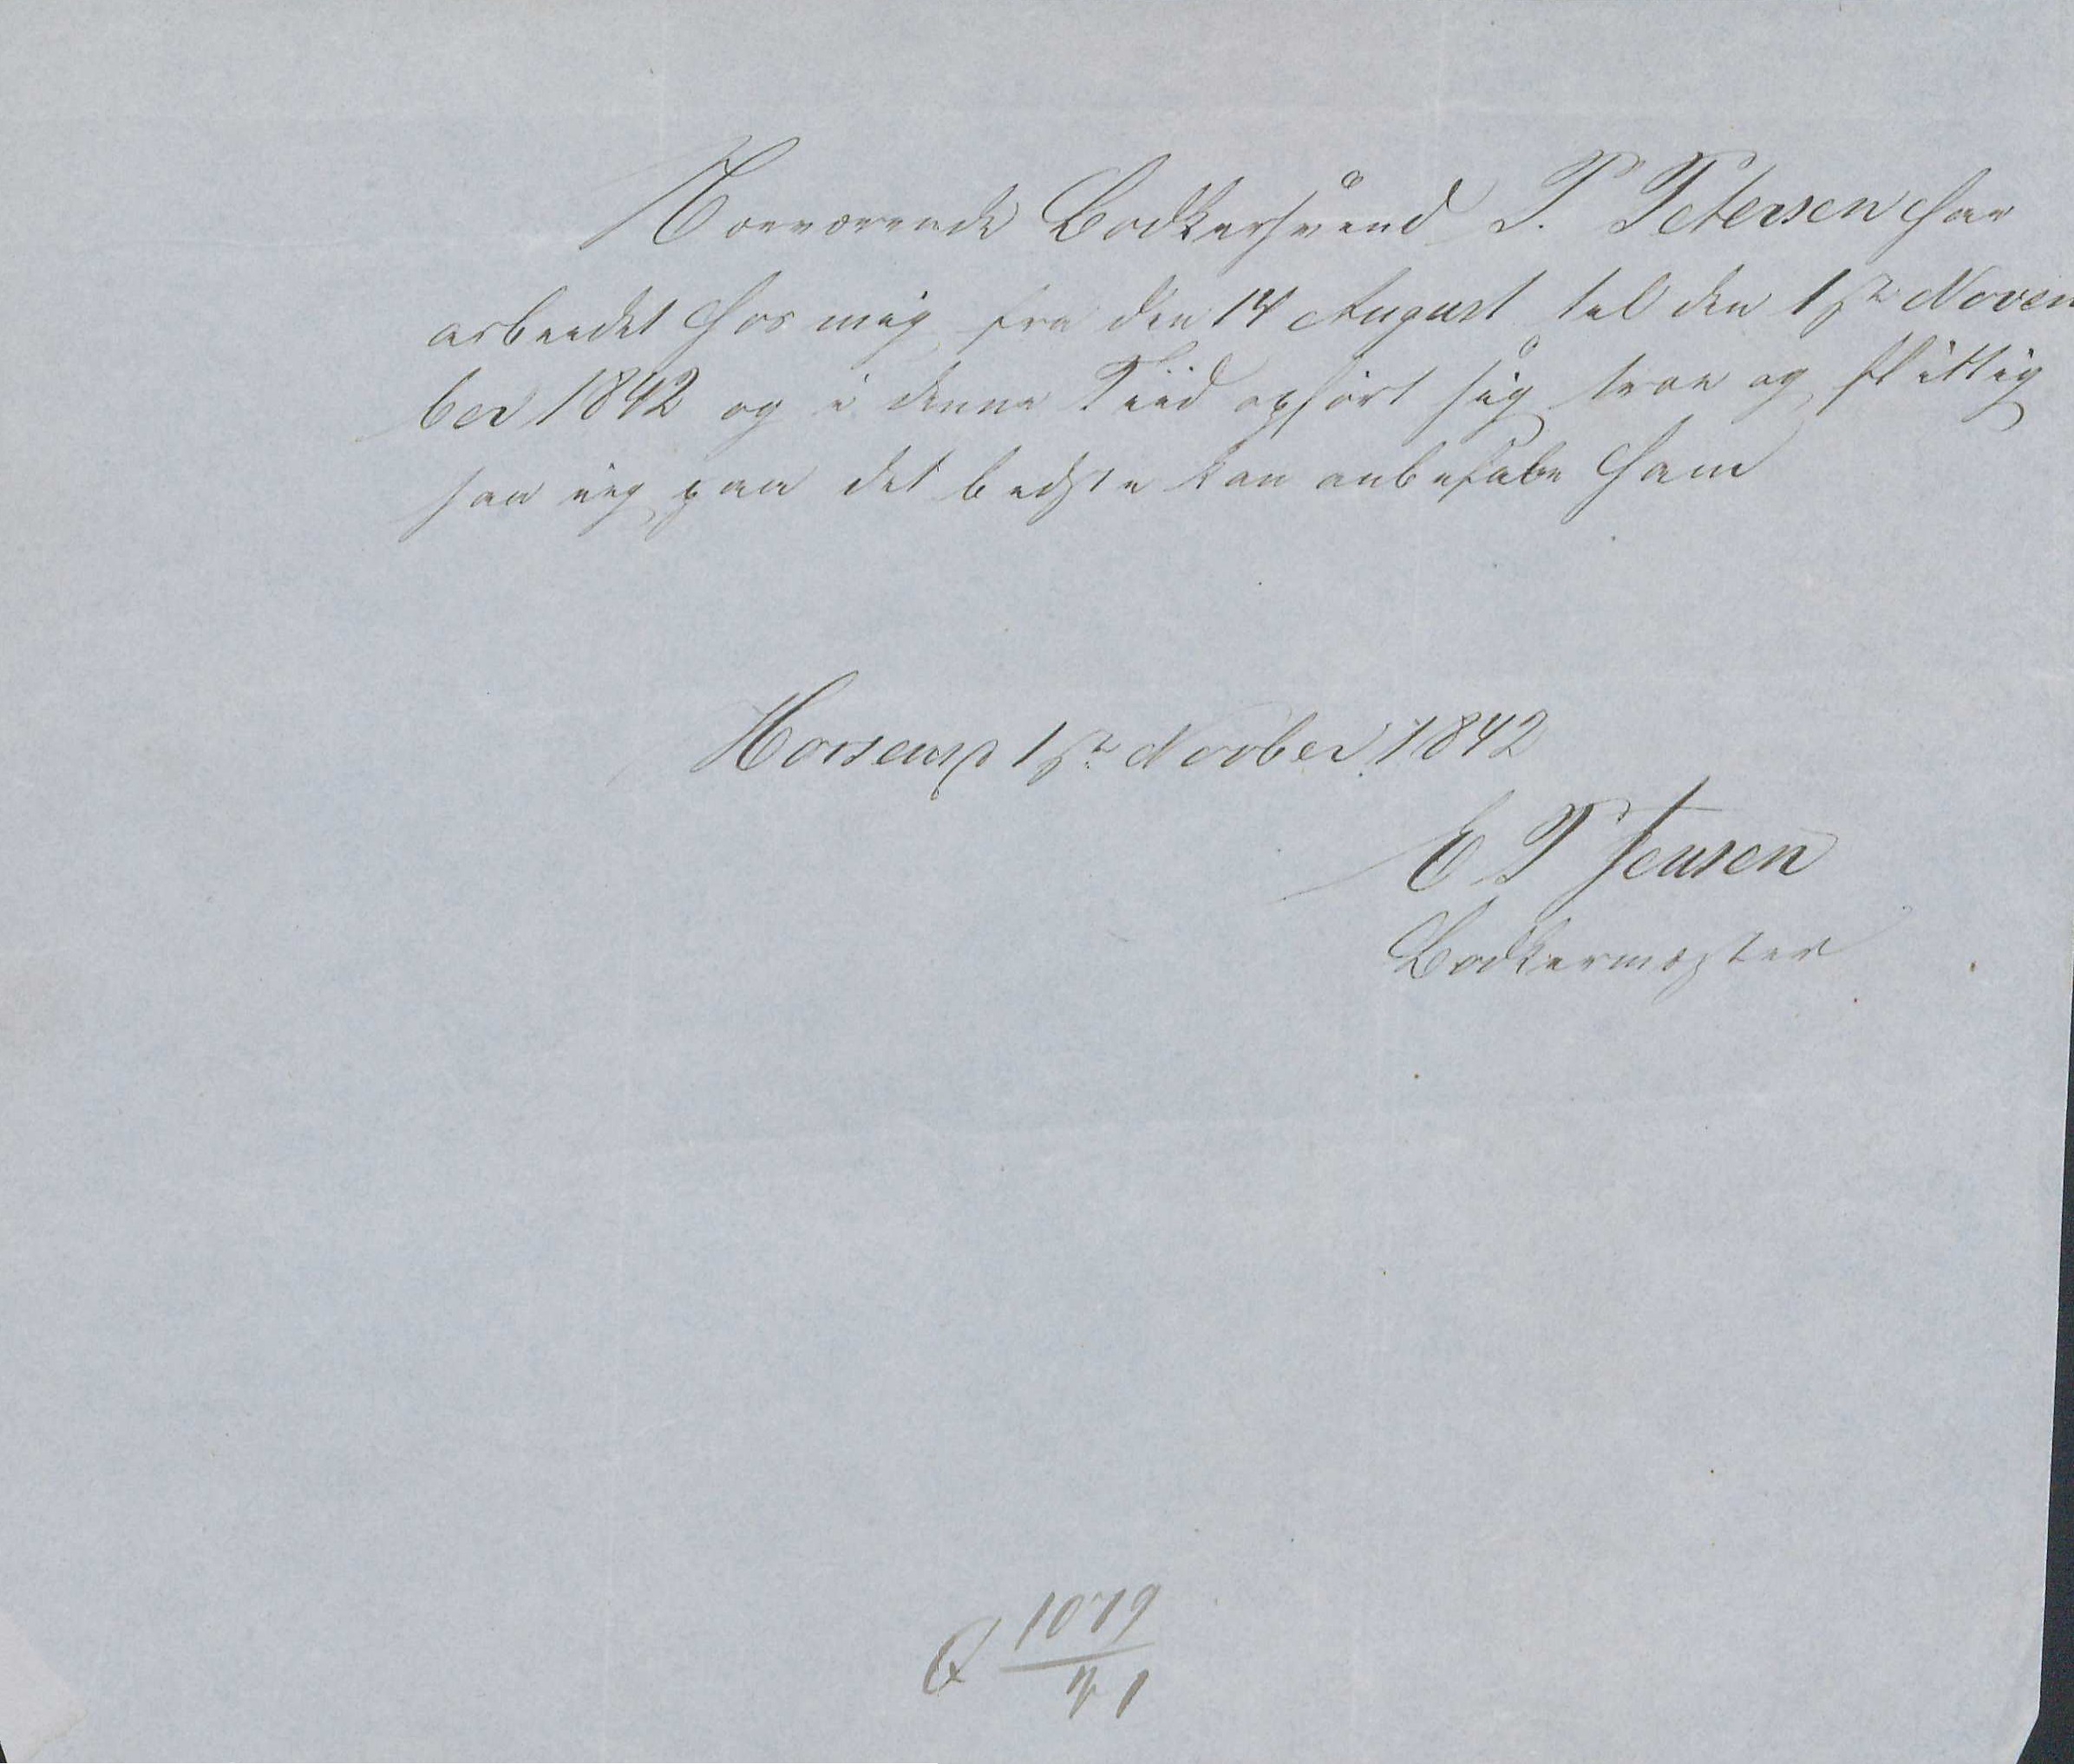 Nærværende Bødkersvend P. Petersen har
arbeidet hos mig fra den 14 August til den 1ste Novem
ber 1842 og i denne Tiid opført sig troe og flittig
saa ieg paa det bedste kan anbefale ham
Horsens 1ste Novber 1842
E P Jensen
Bødkermester
1079